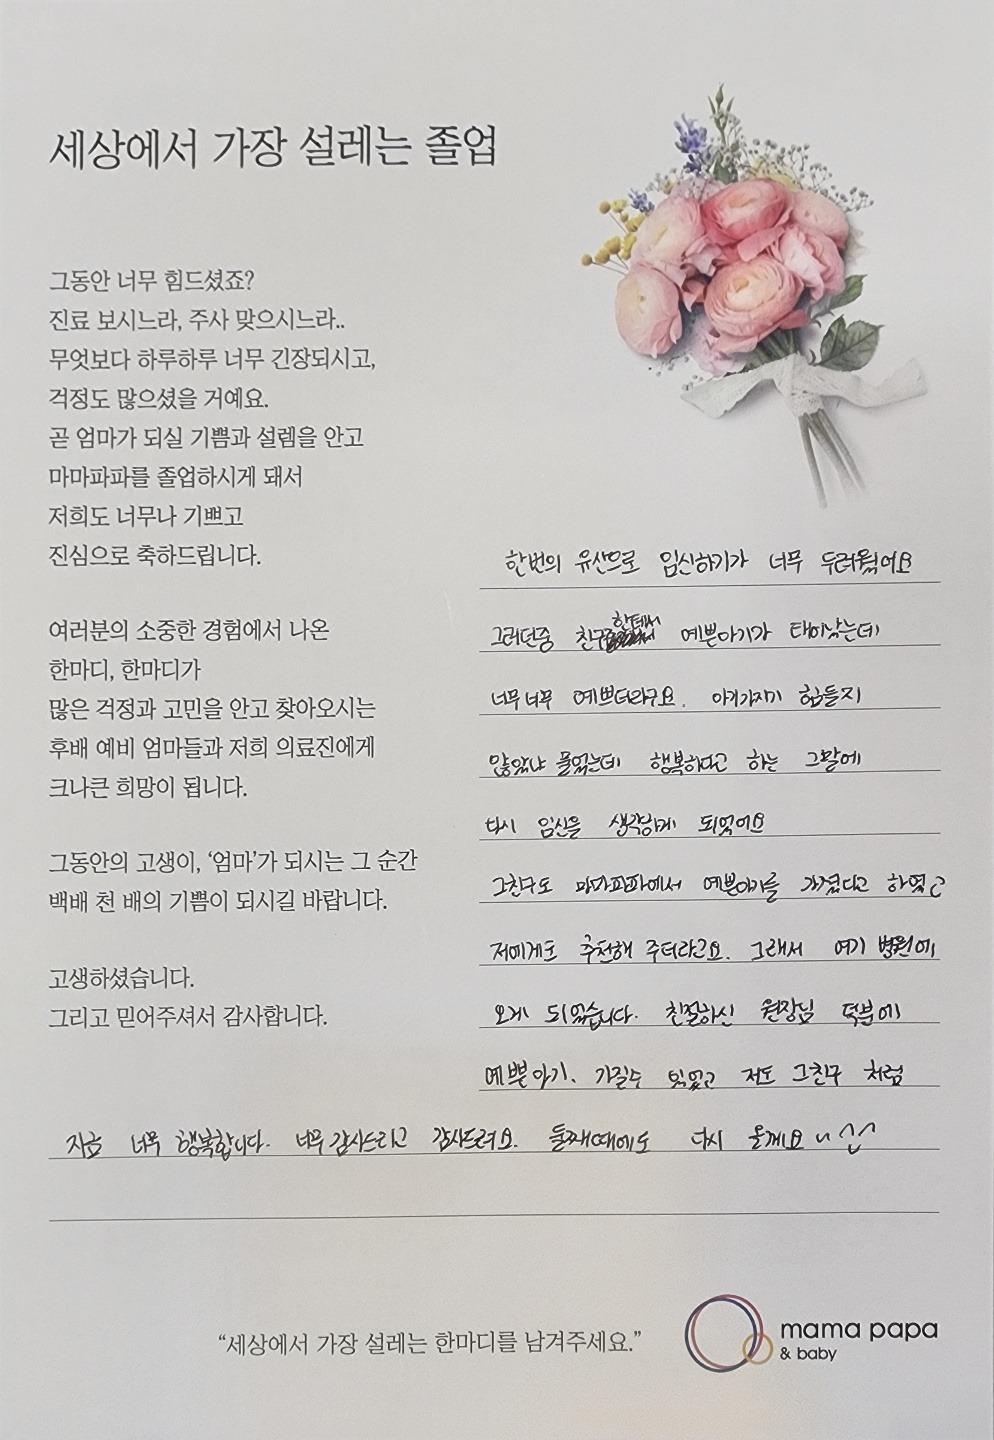 세상에서 가장 설레는 졸업
그동안 너무 힘드셨죠?
진료 보시느라, 주사 맞으시느라..
무엇보다 하루하루 너무 긴장되시고,
걱정도 많으셨을 거예요.
곧 엄마가 되실 기쁨과 설렘을 안고
마마파파를 졸업하시게 돼서
저희도 너무나 기쁘고
진심으로 축하드립니다.
여러분의 소중한 경험에서 나온
한마디, 한마디가
많은 걱정과 고민을 안고 찾아오시는
후배 예비 엄마들과 저희 의료진에게
크나큰 희망이 됩니다.
그동안의 고생이, ‘엄마’가 되시는 그 순간
백배 천 배의 기쁨이 되시길 바랍니다.
고생하셨습니다.
그리고 믿어주셔서 감사합니다.
한번의 유산으로 임신하기가 너무 두려웠어요
그러던중 친구한테서 예쁜아기가 태어났는데
너무너무 예쁘더라구요. 아기가지기 힘들지
않았냐 물었는데 행복하다고 하는 그말에
다시 임신을 생각하게 되었어요
그친구도 마마파파에서 예쁜아기를 가졌다고 하였고
저에게도 추천해 주더라고요. 그래서 여기 병원에
오게 되었습니다. 친절하신 원장님 덕분에
예쁜아기. 가질수 있었고 저도 그친구 처럼
지금 너무 행복합니다. 너무 감사드리고 감사드려요. 둘째때에도 다시 올께요~ ^^
“세상에서 가장 설레는 한마디를 남겨주세요.”
mama papa
& baby